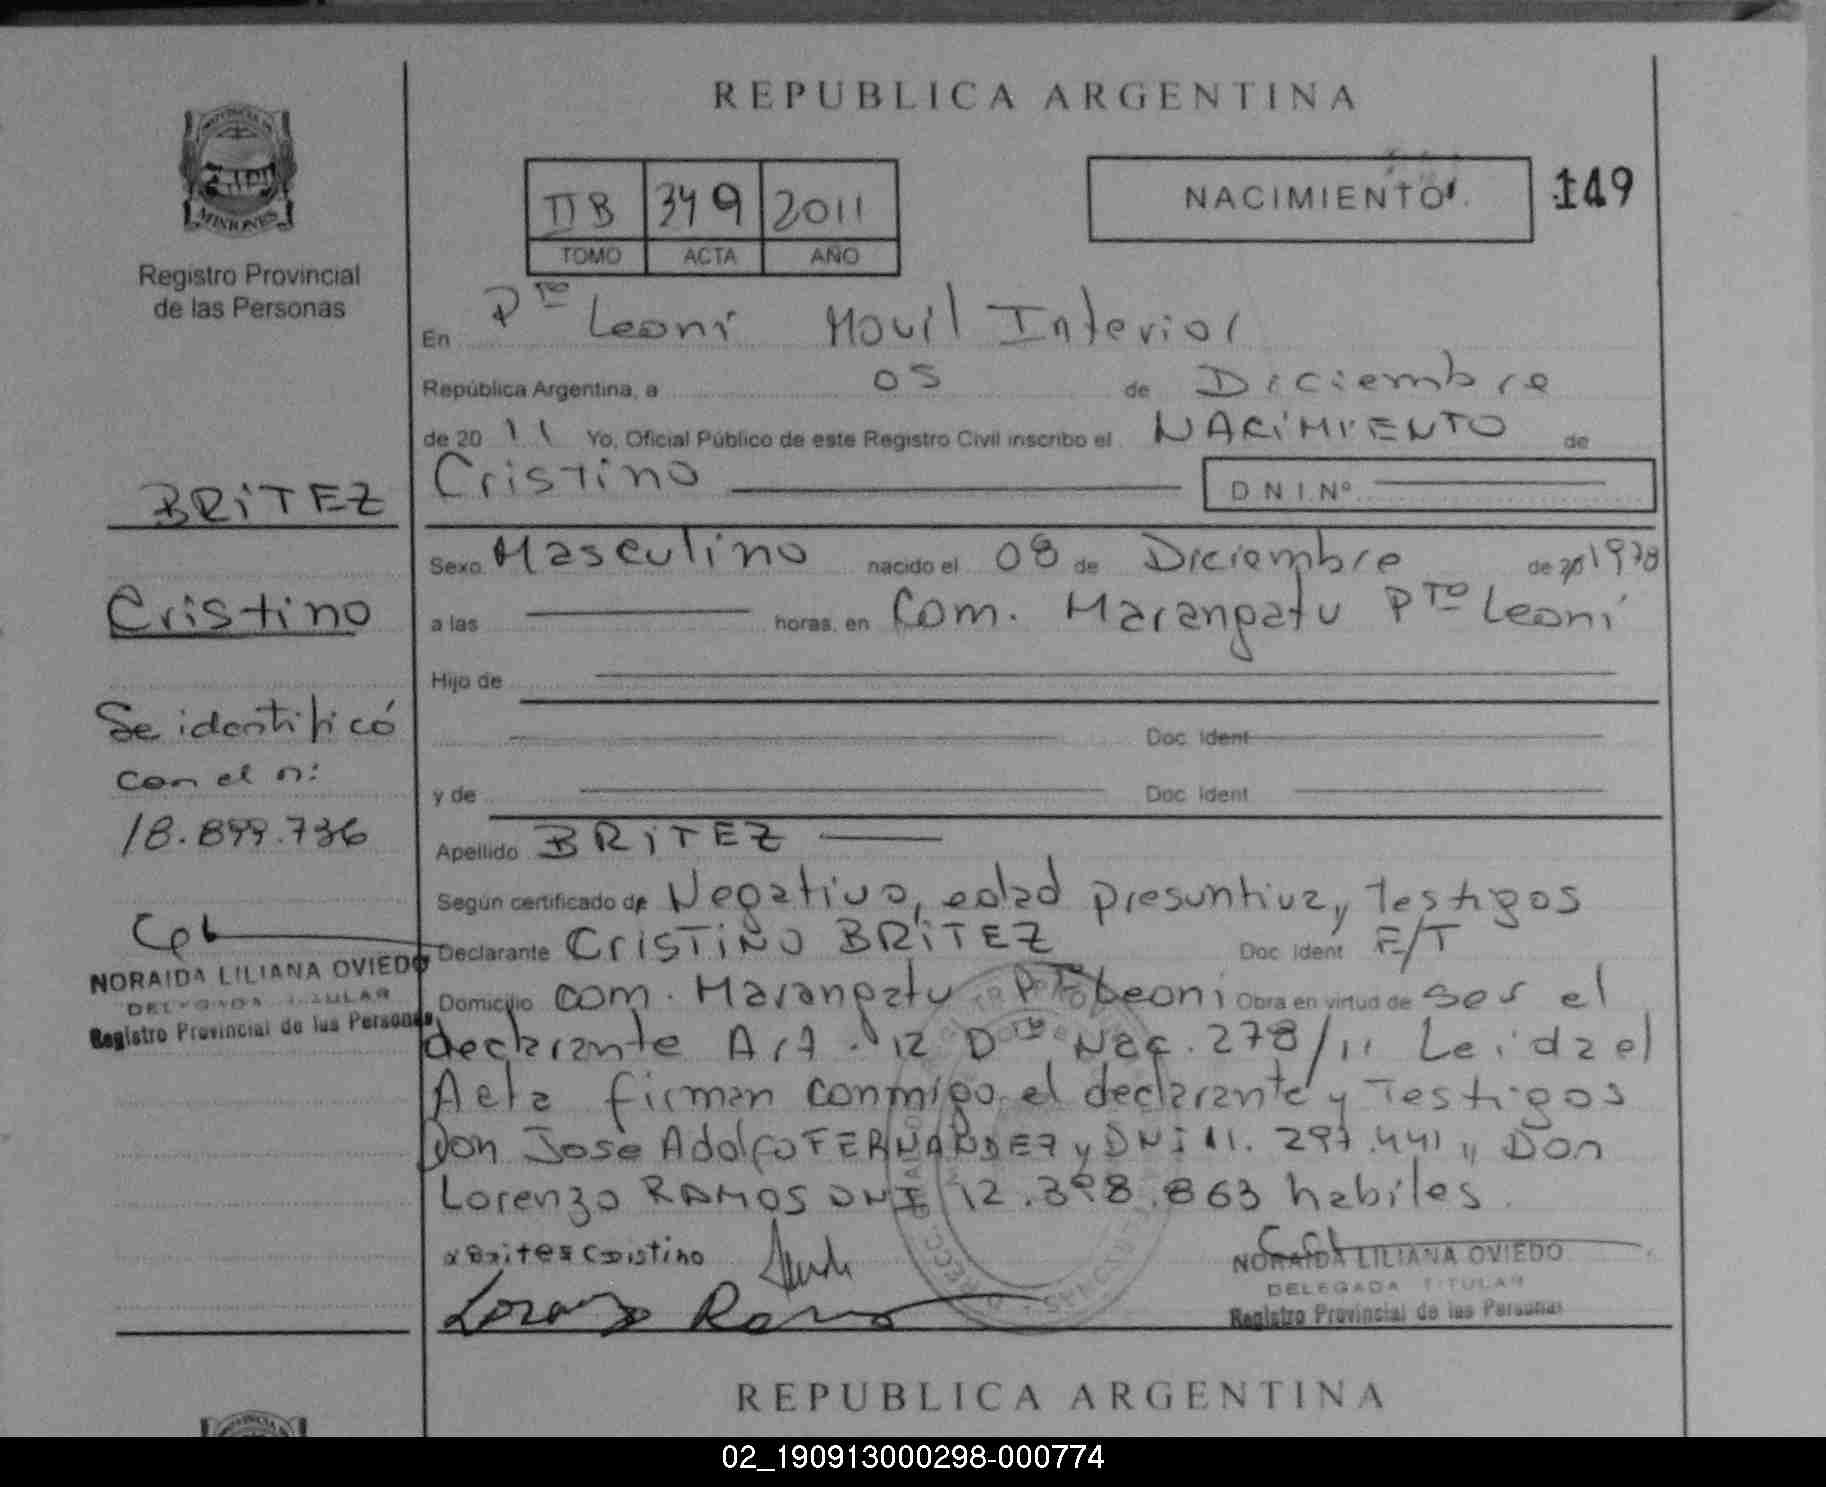 REPUBLICA ARGENTINA
MISIONES
Registro Provincial
de las Personas
II B 349 2011
TOMO ACTA AÑO
NACIMIENTO
149
En Pto Leoni Movil Interior
República Argentina, a 05 de Diciembre
de 2011 Yo, Oficial Público de este Registro Civil inscribo el NACIMIENTO de
Cristino D N I Nº
BRITEZ
Cristino
Se identificó
con el n:
18.899.736
NORAIDA LILIANA OVIEDO
DELEGADA TITULAR
Registro Provincial de las Personas
Sexo Masculino nacido el 08 de Diciembre de 1978
a las horas, en Com. Marangatu Pto Leoni
Hijo de
Doc Ident
y de Doc Ident
Apellido BRITEZ
Según certificado de Negativo, edad presuntiva y Testigos
Declarante CRISTINO BRITEZ Doc Ident F/T
Domicilio Com. Marangatu Pto Leoni Obra en virtud de Ser el
declarante Art. 12 Dto Nac. 278/11 Leida el
Acta firman conmigo el declarante y Testigos
Don Jose Adolfo FERNANDEZ y DNI 11.297.441 y Don
Lorenzo RAMOS DNI 12.398.863 habiles.
x Brites Cristino
NORAIDA LILIANA OVIEDO
DELEGADA TITULAR
Registro Provincial de las Personas
REPUBLICA ARGENTINA
02_190913000298-000774